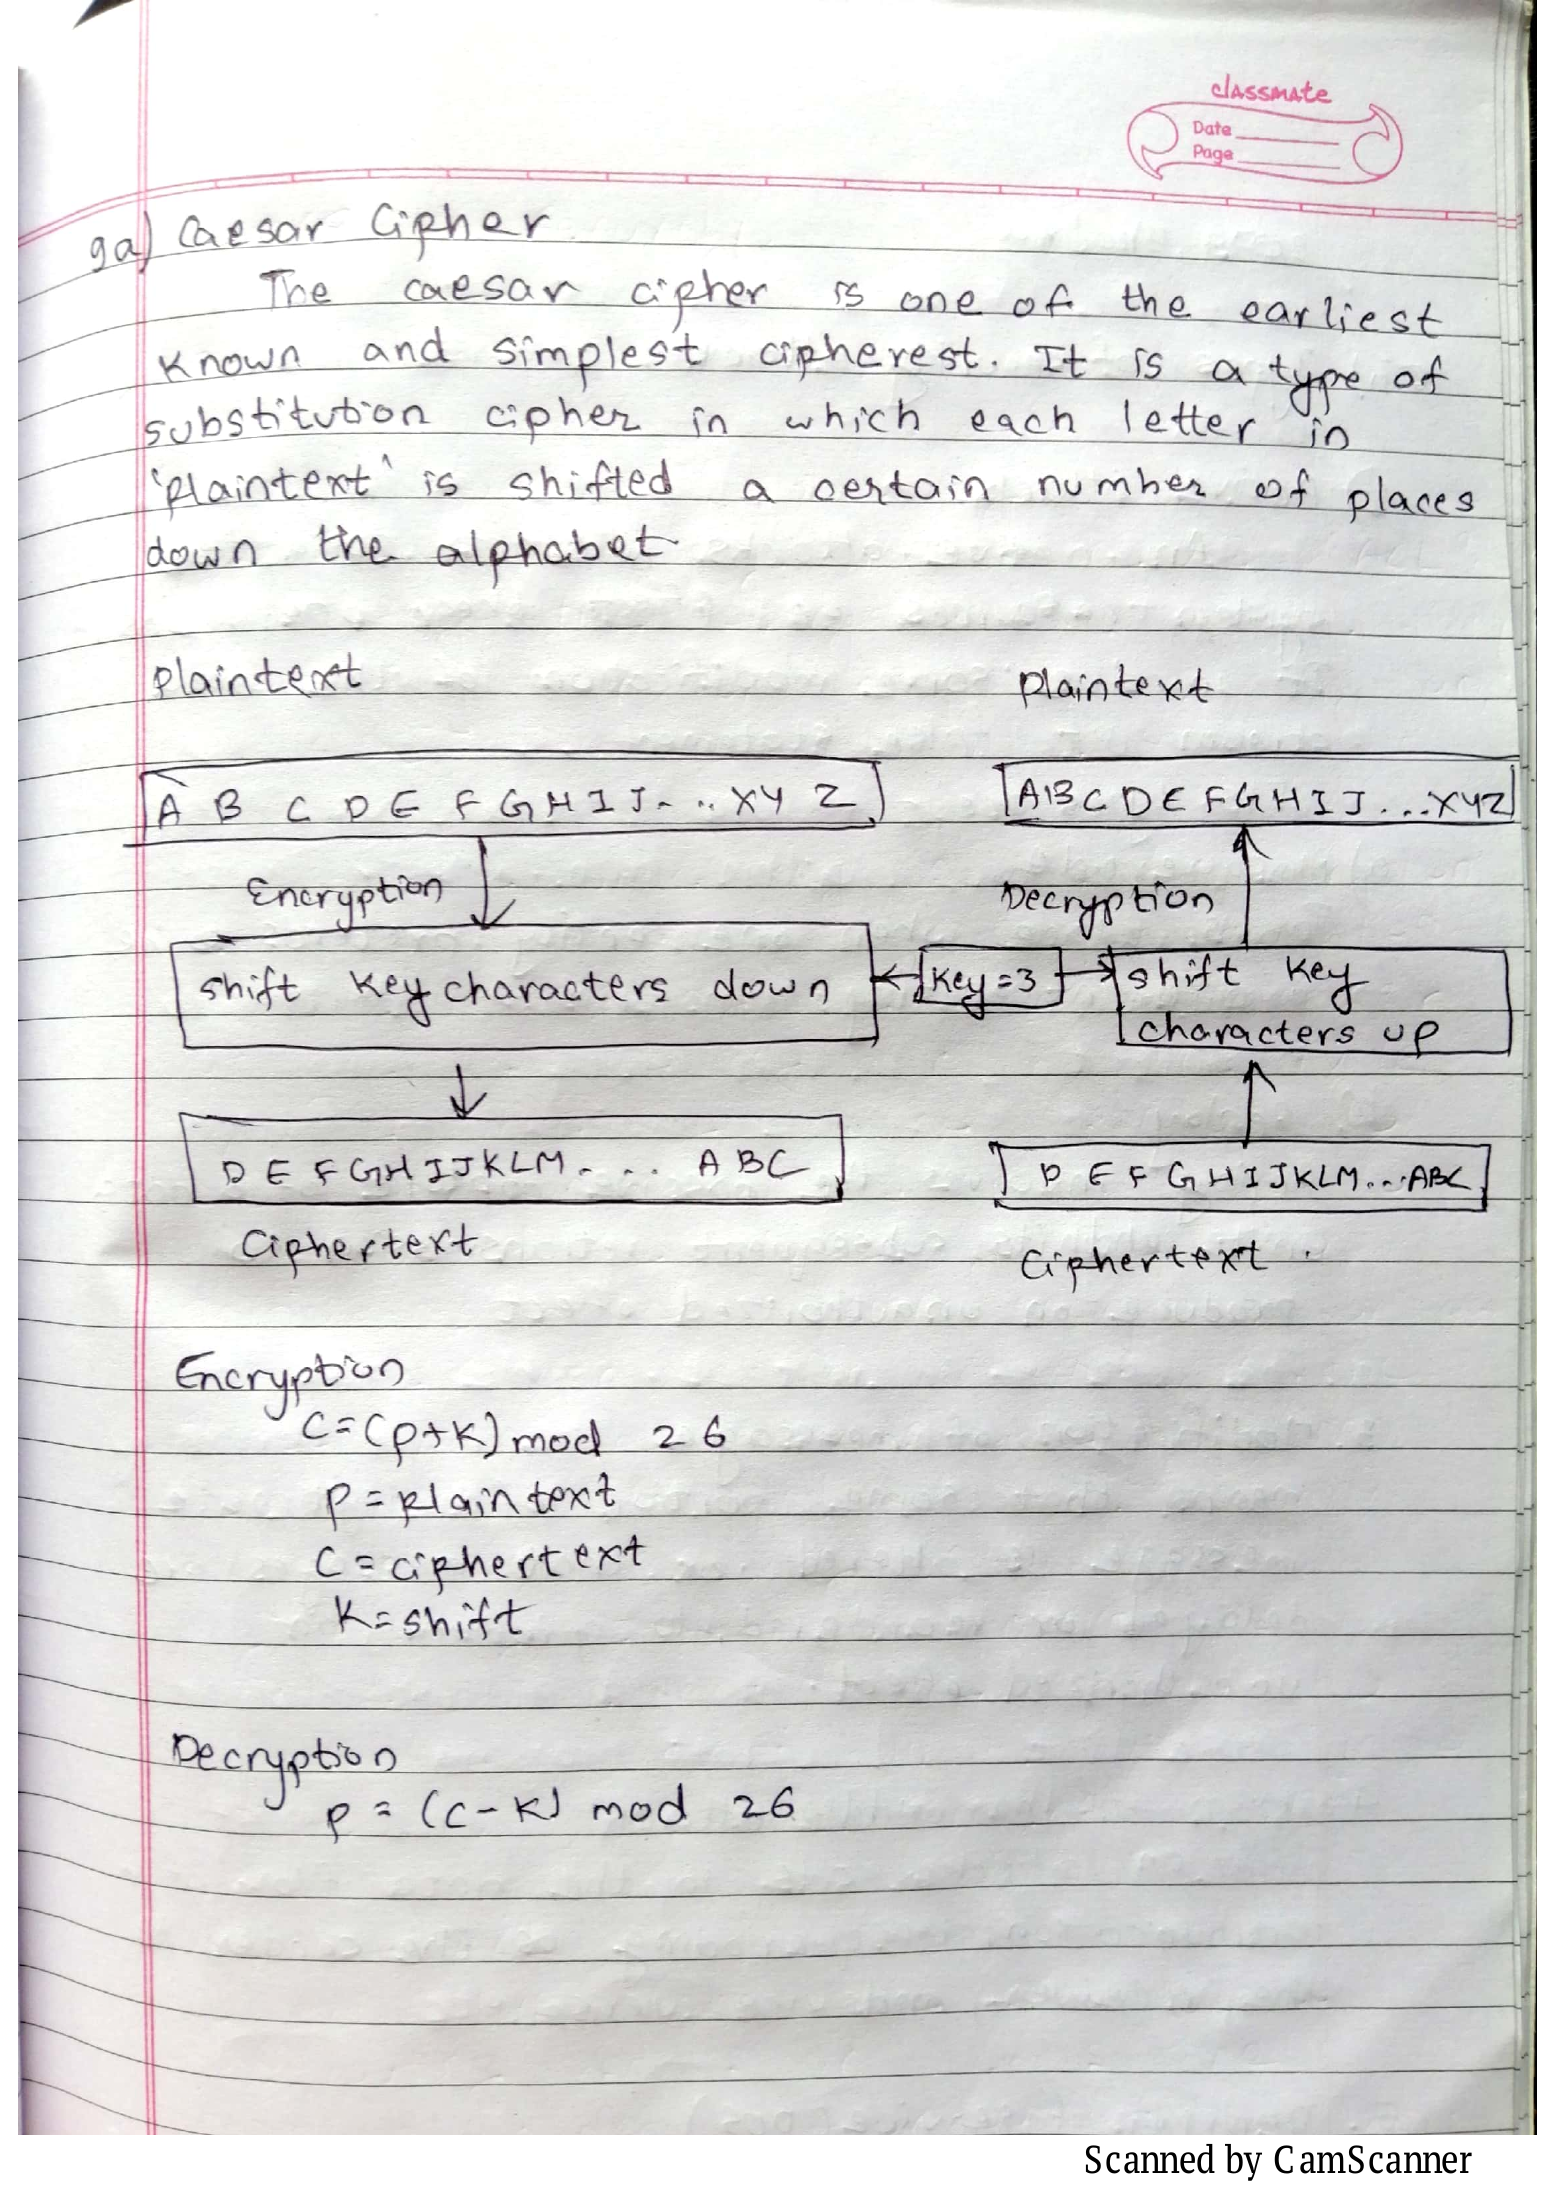 classmate
Date
Page
9a) Caesar Cipher
The caesar cipher is one of the earliest
known and simplest cipherest. It is a type of
substitution cipher in which each letter in
'plaintext' is shifted a certain number of places
down the alphabet.
Plaintext
Plaintext
A B C D E F G H I J - .. X Y Z
A B C D E F G H I J ... X Y Z
Encryption
Decryption
shift key characters down
Key = 3
shift key
characters up
D E F G H I J K L M - ... A B C
D E F G H I J K L M ... ABC
Ciphertext
Ciphertext .
Encryption
C = (P + K) mod 26
P = plaintext
C = ciphertext
K = shift
Decryption
P = (C - K) mod 26
Scanned by CamScanner